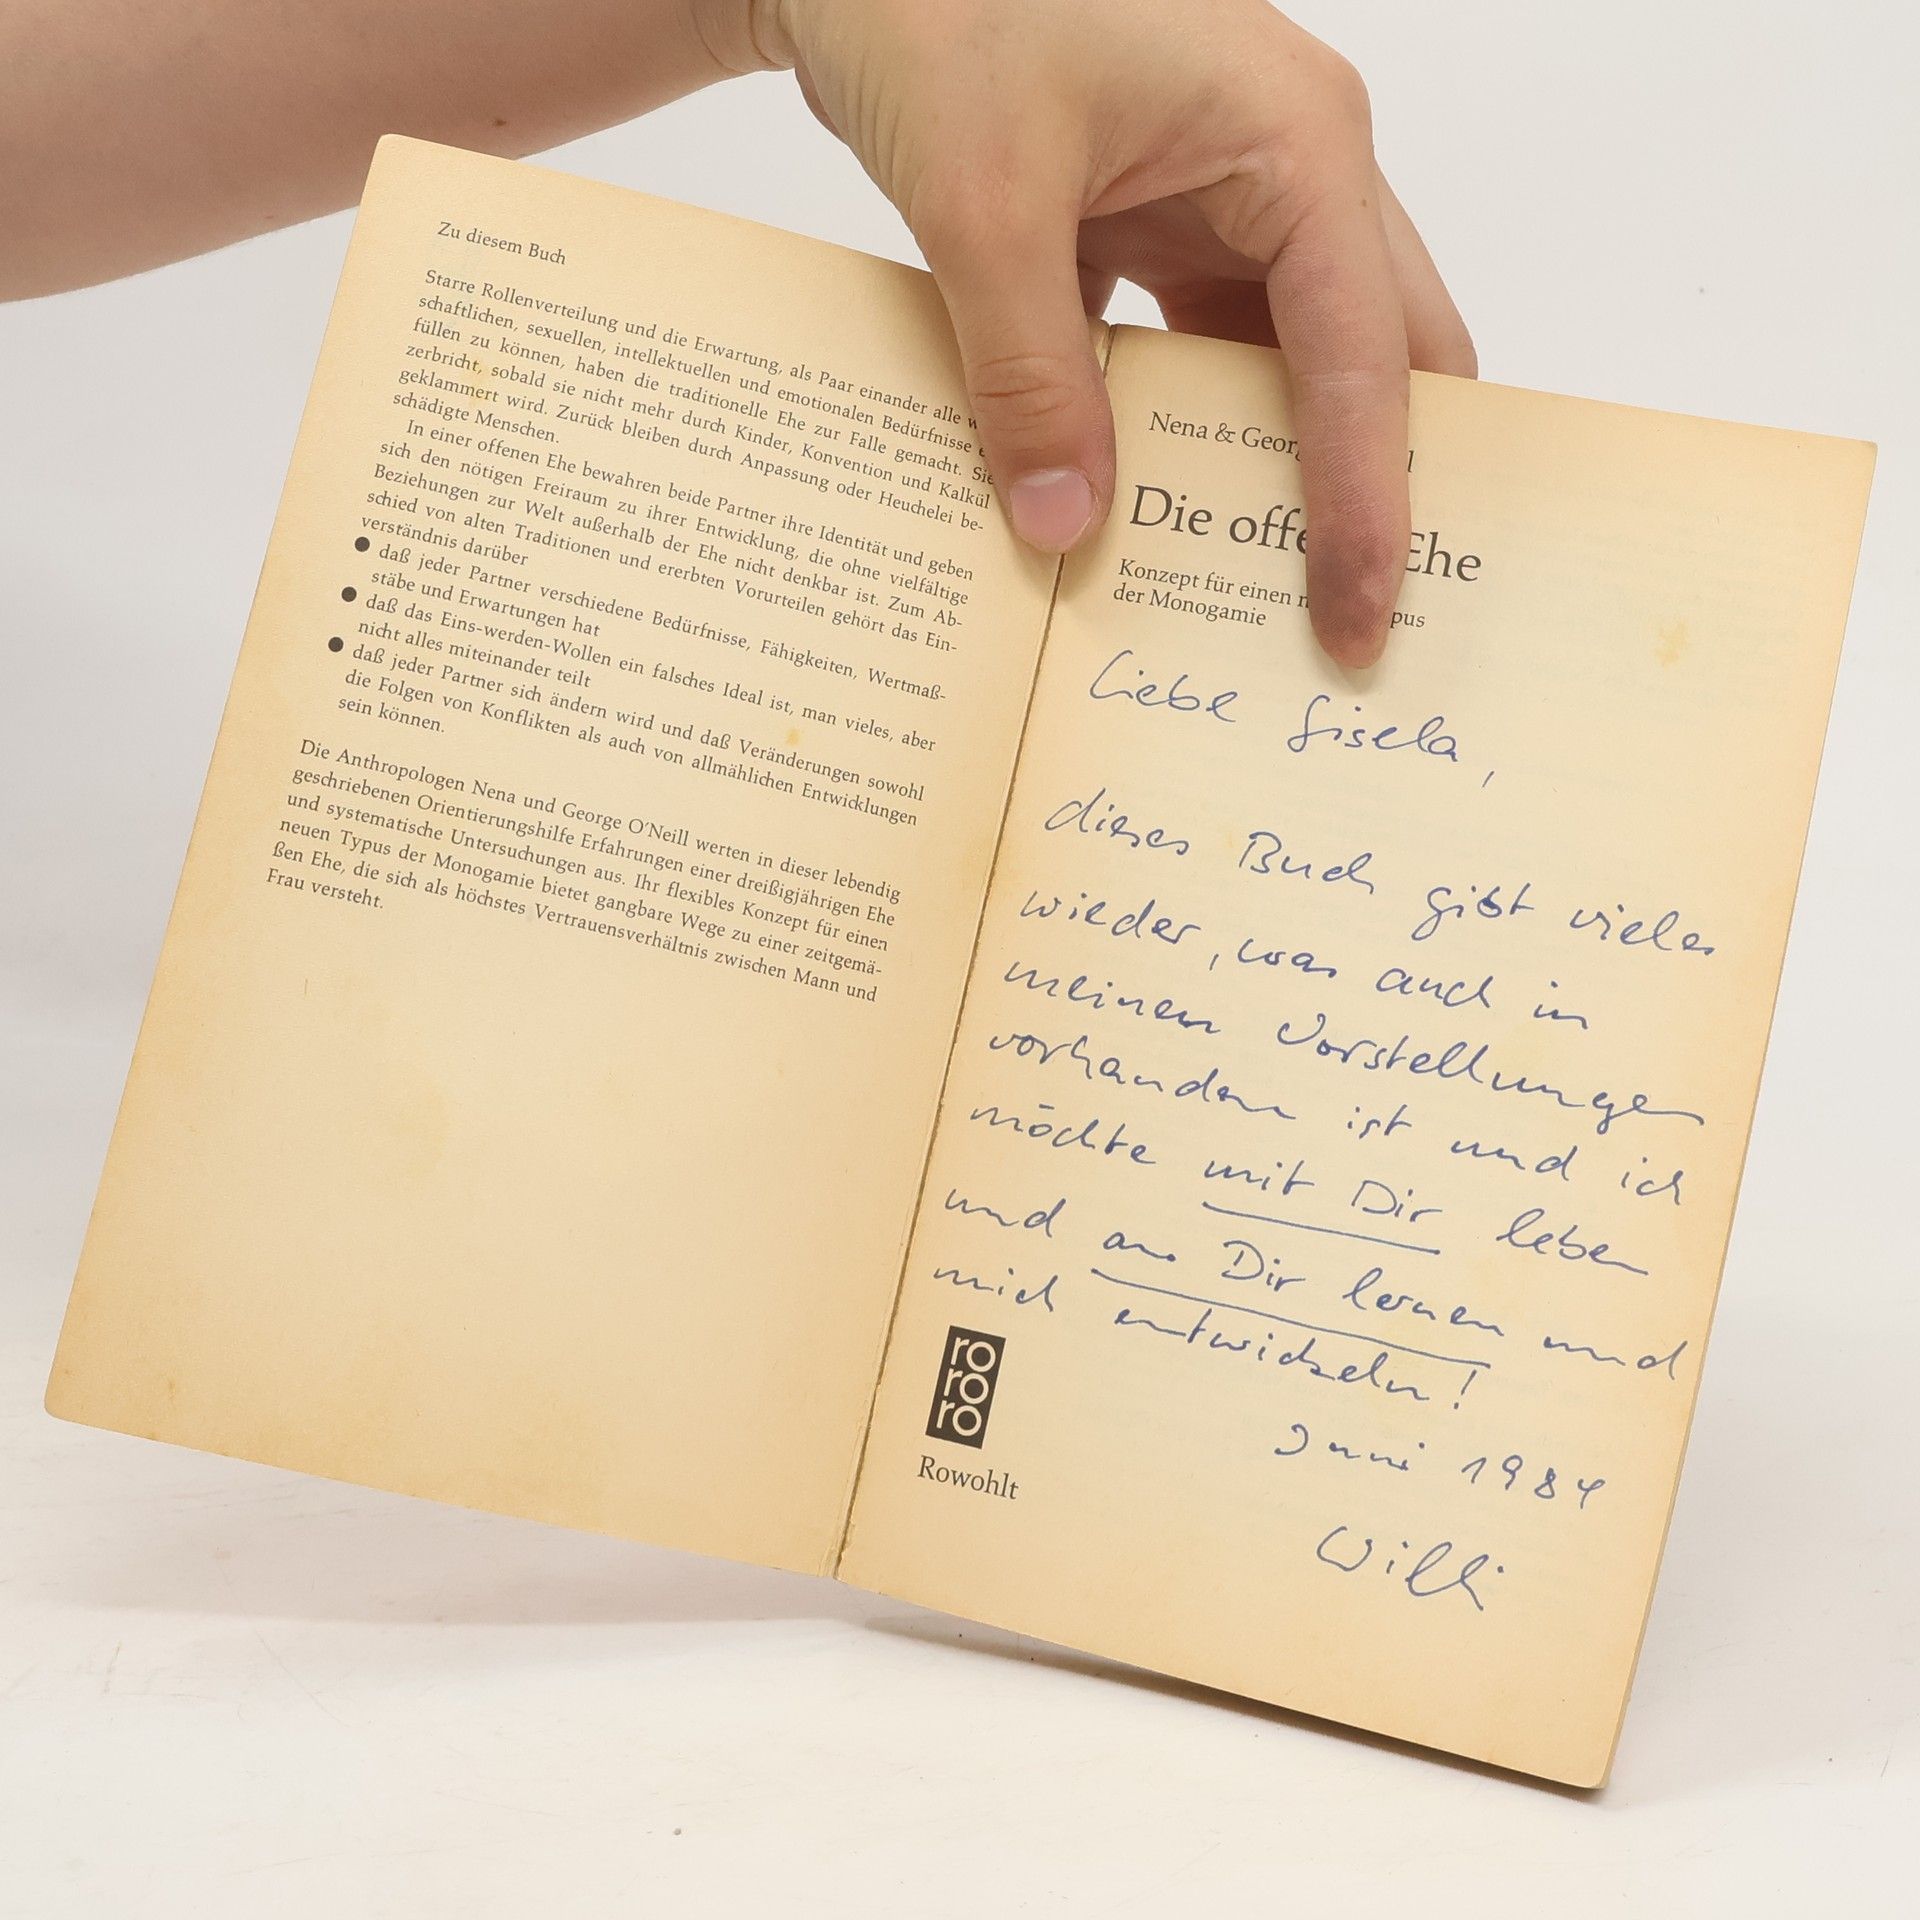 Zu diesem Buch
Starre Rollenverteilung und die Erwartung, als Paar einander alle
schaftlichen, sexuellen, intellektuellen und emotionalen Bedürfnisse
füllen zu können, haben die traditionelle Ehe zur Falle gemacht. Sie
zerbricht, sobald sie nicht mehr durch Kinder, Konvention und Kalkül
geklammert wird. Zurück bleiben durch Anpassung oder Heuchelei be-
schädigte Menschen.
In einer offenen Ehe bewahren beide Partner ihre Identität und geben
sich den nötigen Freiraum zu ihrer Entwicklung, die ohne vielfältige
Beziehungen zur Welt außerhalb der Ehe nicht denkbar ist. Zum Ab-
schied von alten Traditionen und ererbten Vorurteilen gehört das Ein-
verständnis darüber
● daß jeder Partner verschiedene Bedürfnisse, Fähigkeiten, Wertmaß-
stäbe und Erwartungen hat
● daß das Eins-werden-Wollen ein falsches Ideal ist, man vieles, aber
nicht alles miteinander teilt
● daß jeder Partner sich ändern wird und daß Veränderungen sowohl
die Folgen von Konflikten als auch von allmählichen Entwicklungen
sein können.
Die Anthropologen Nena und George O'Neill werten in dieser lebendig
geschriebenen Orientierungshilfe Erfahrungen einer dreißigjährigen Ehe
und systematische Untersuchungen aus. Ihr flexibles Konzept für einen
neuen Typus der Monogamie bietet gangbare Wege zu einer zeitgemä-
ßen Ehe, die sich als höchstes Vertrauensverhältnis zwischen Mann und
Frau versteht.
Nena &
Die Ehe
Konzept für einen
der Monogamie
Liebe Gisela,
dieses Buch gibt vieles
wieder, was auch in
meinen Vorstellungen
vorhanden ist und ich
möchte mit Dir leben
und an Dir lernen und
mich entwickeln!
Juni 1984
Willi
ro
ro
ro
Rowohlt